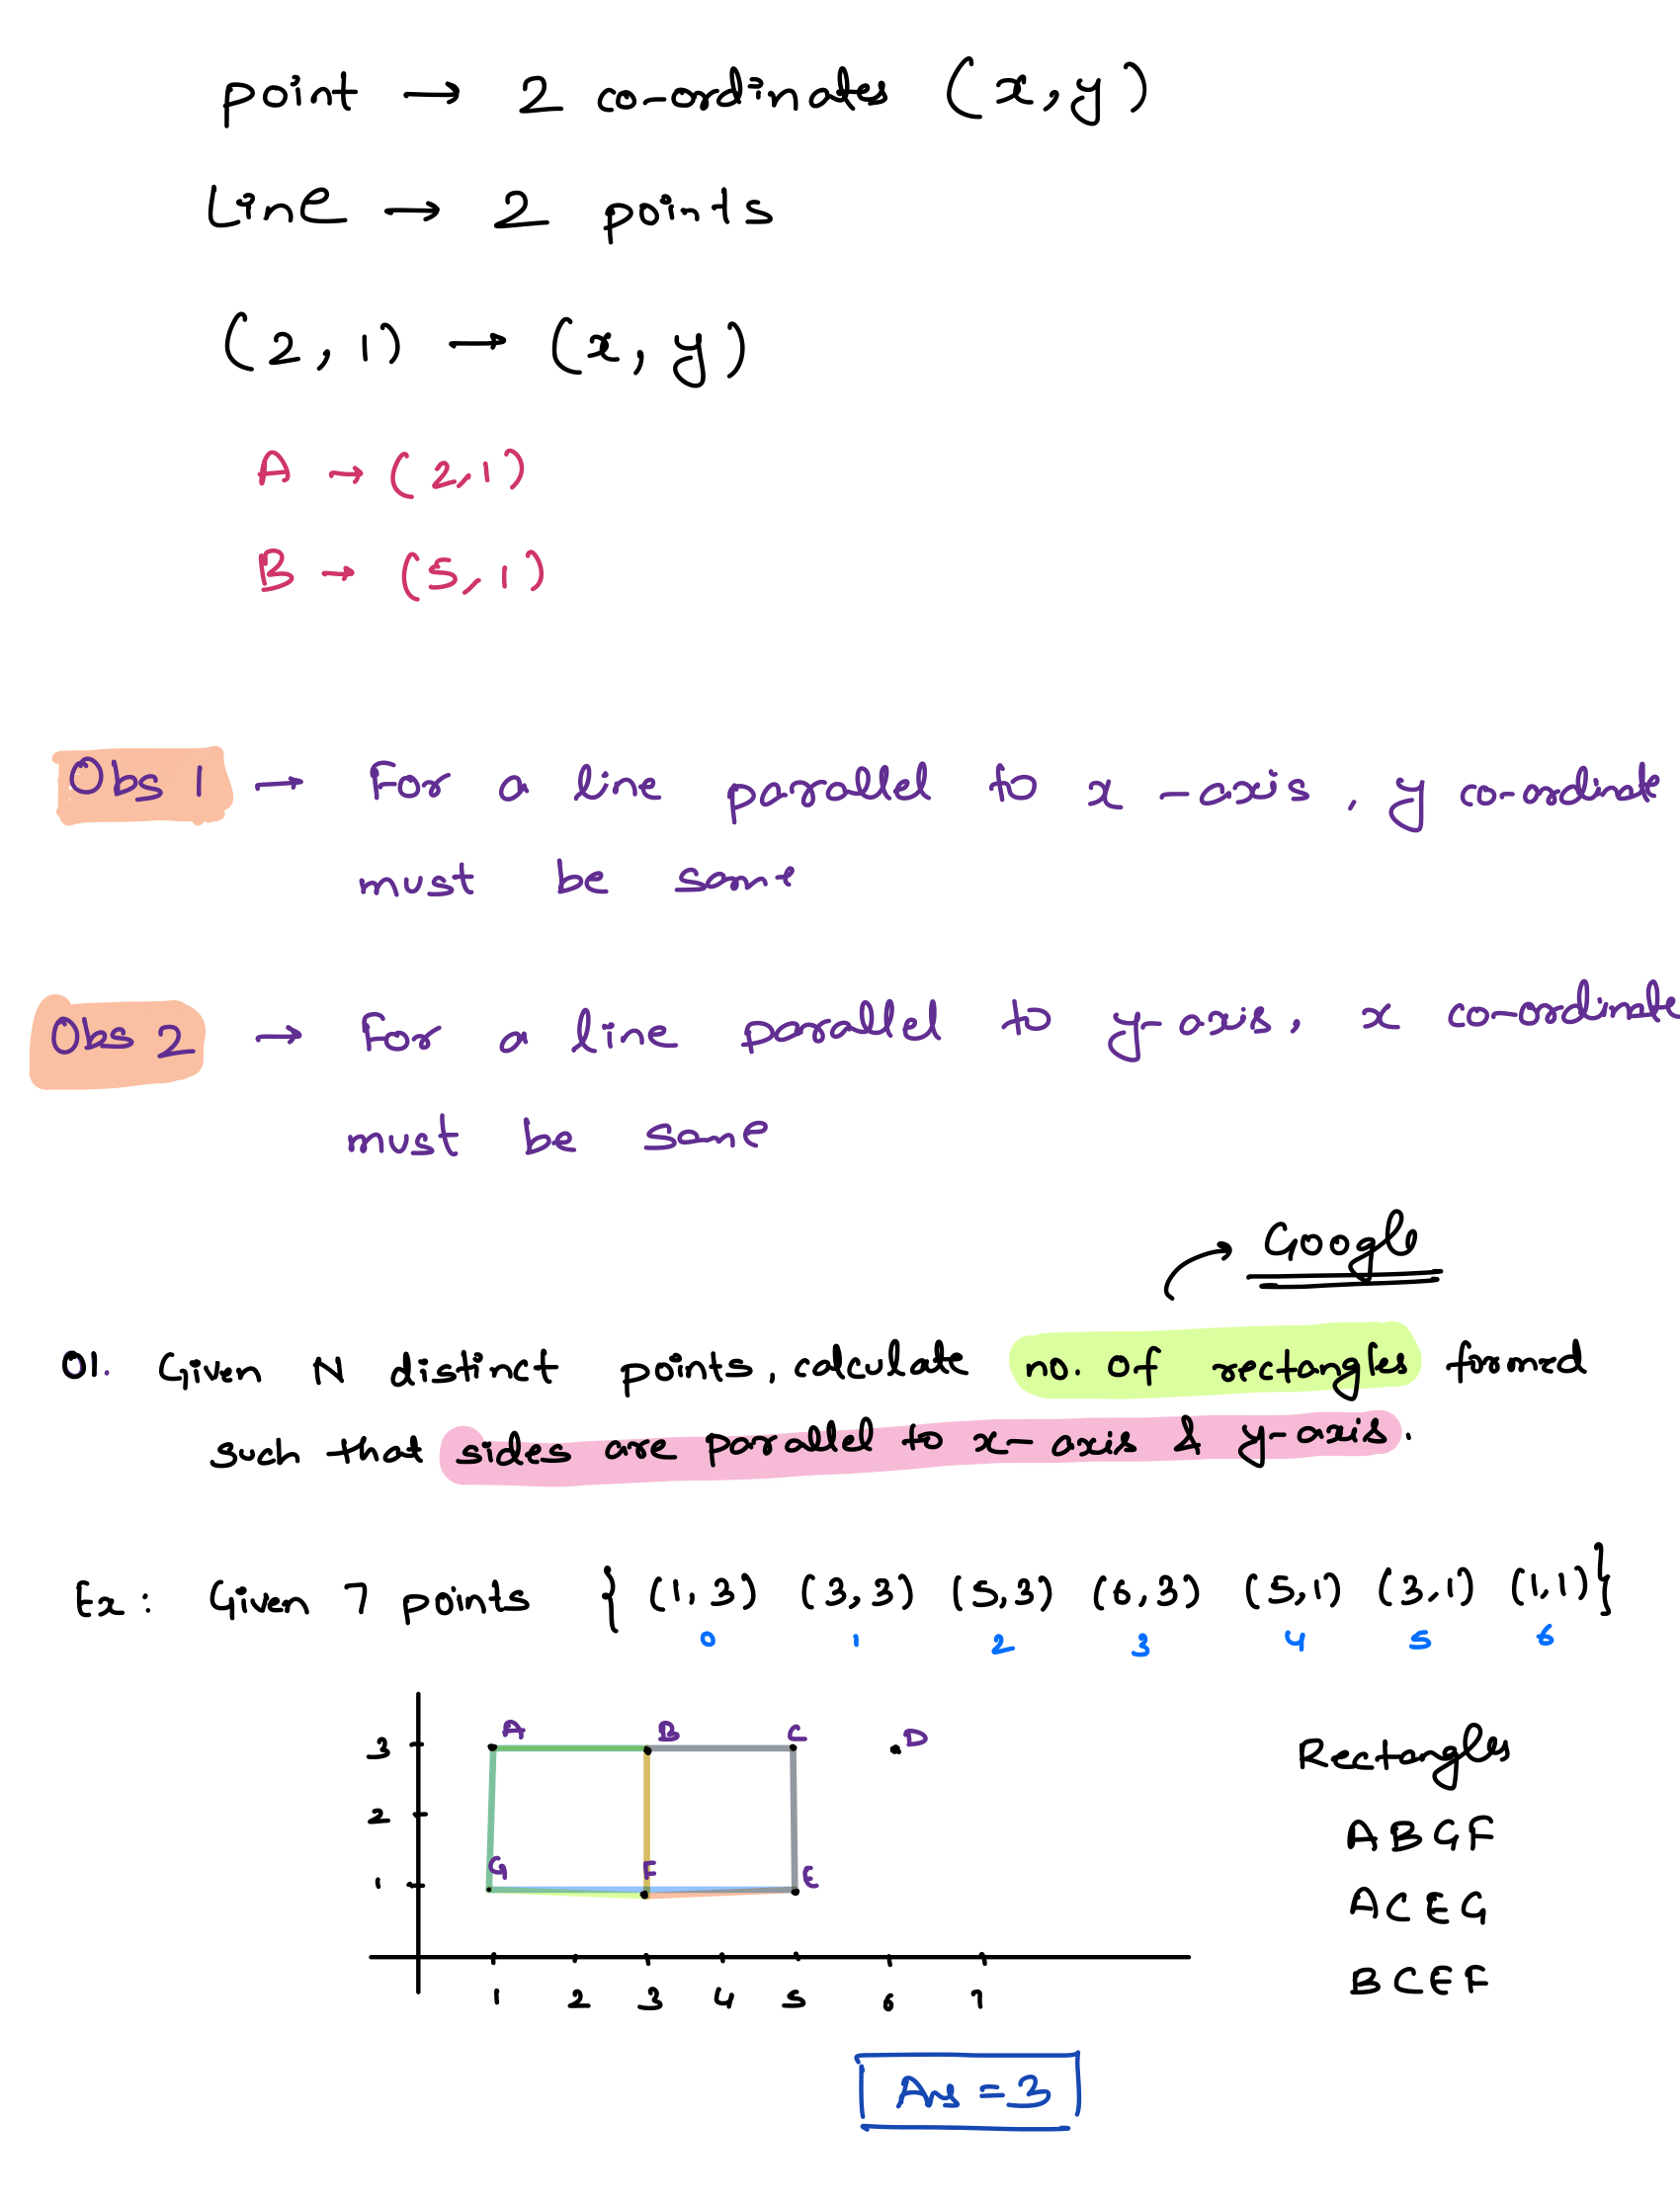 point → 2 co-ordinates (x,y)
Line → 2 points
(2,1) → (x,y)
A → (2,1)
B → (5,1)
Obs 1 → For a line parallel to x-axis, y co-ordinate
must be same
Obs 2 → For a line parallel to y-axis, x co-ordinate
must be same
Google
01. Given N distinct points, calculate no. of rectangles formed
such that sides are parallel to x-axis & y-axis.
Ex: Given 7 points { (1,3) (3,3) (5,3) (6,3) (5,1) (3,1) (1,1)}
0 1 2 3 4 5 6
A B C D
3
Rectangles
2
ABGF
G F E
1
ACEG
BCEF
1 2 3 4 5 6 7
Ans = 3